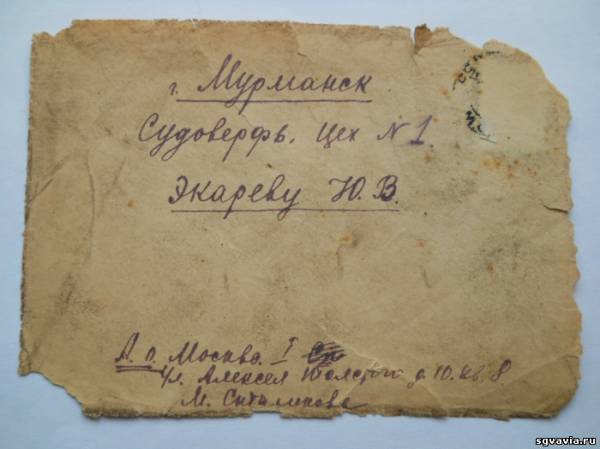 г. Мурманск
Судоверфь. Цех №1.
Экареву Ю.В.
А.о. Москва. I
ул. Алексея Толстого д 10. кв. 8.
М.
sgvavia.ru